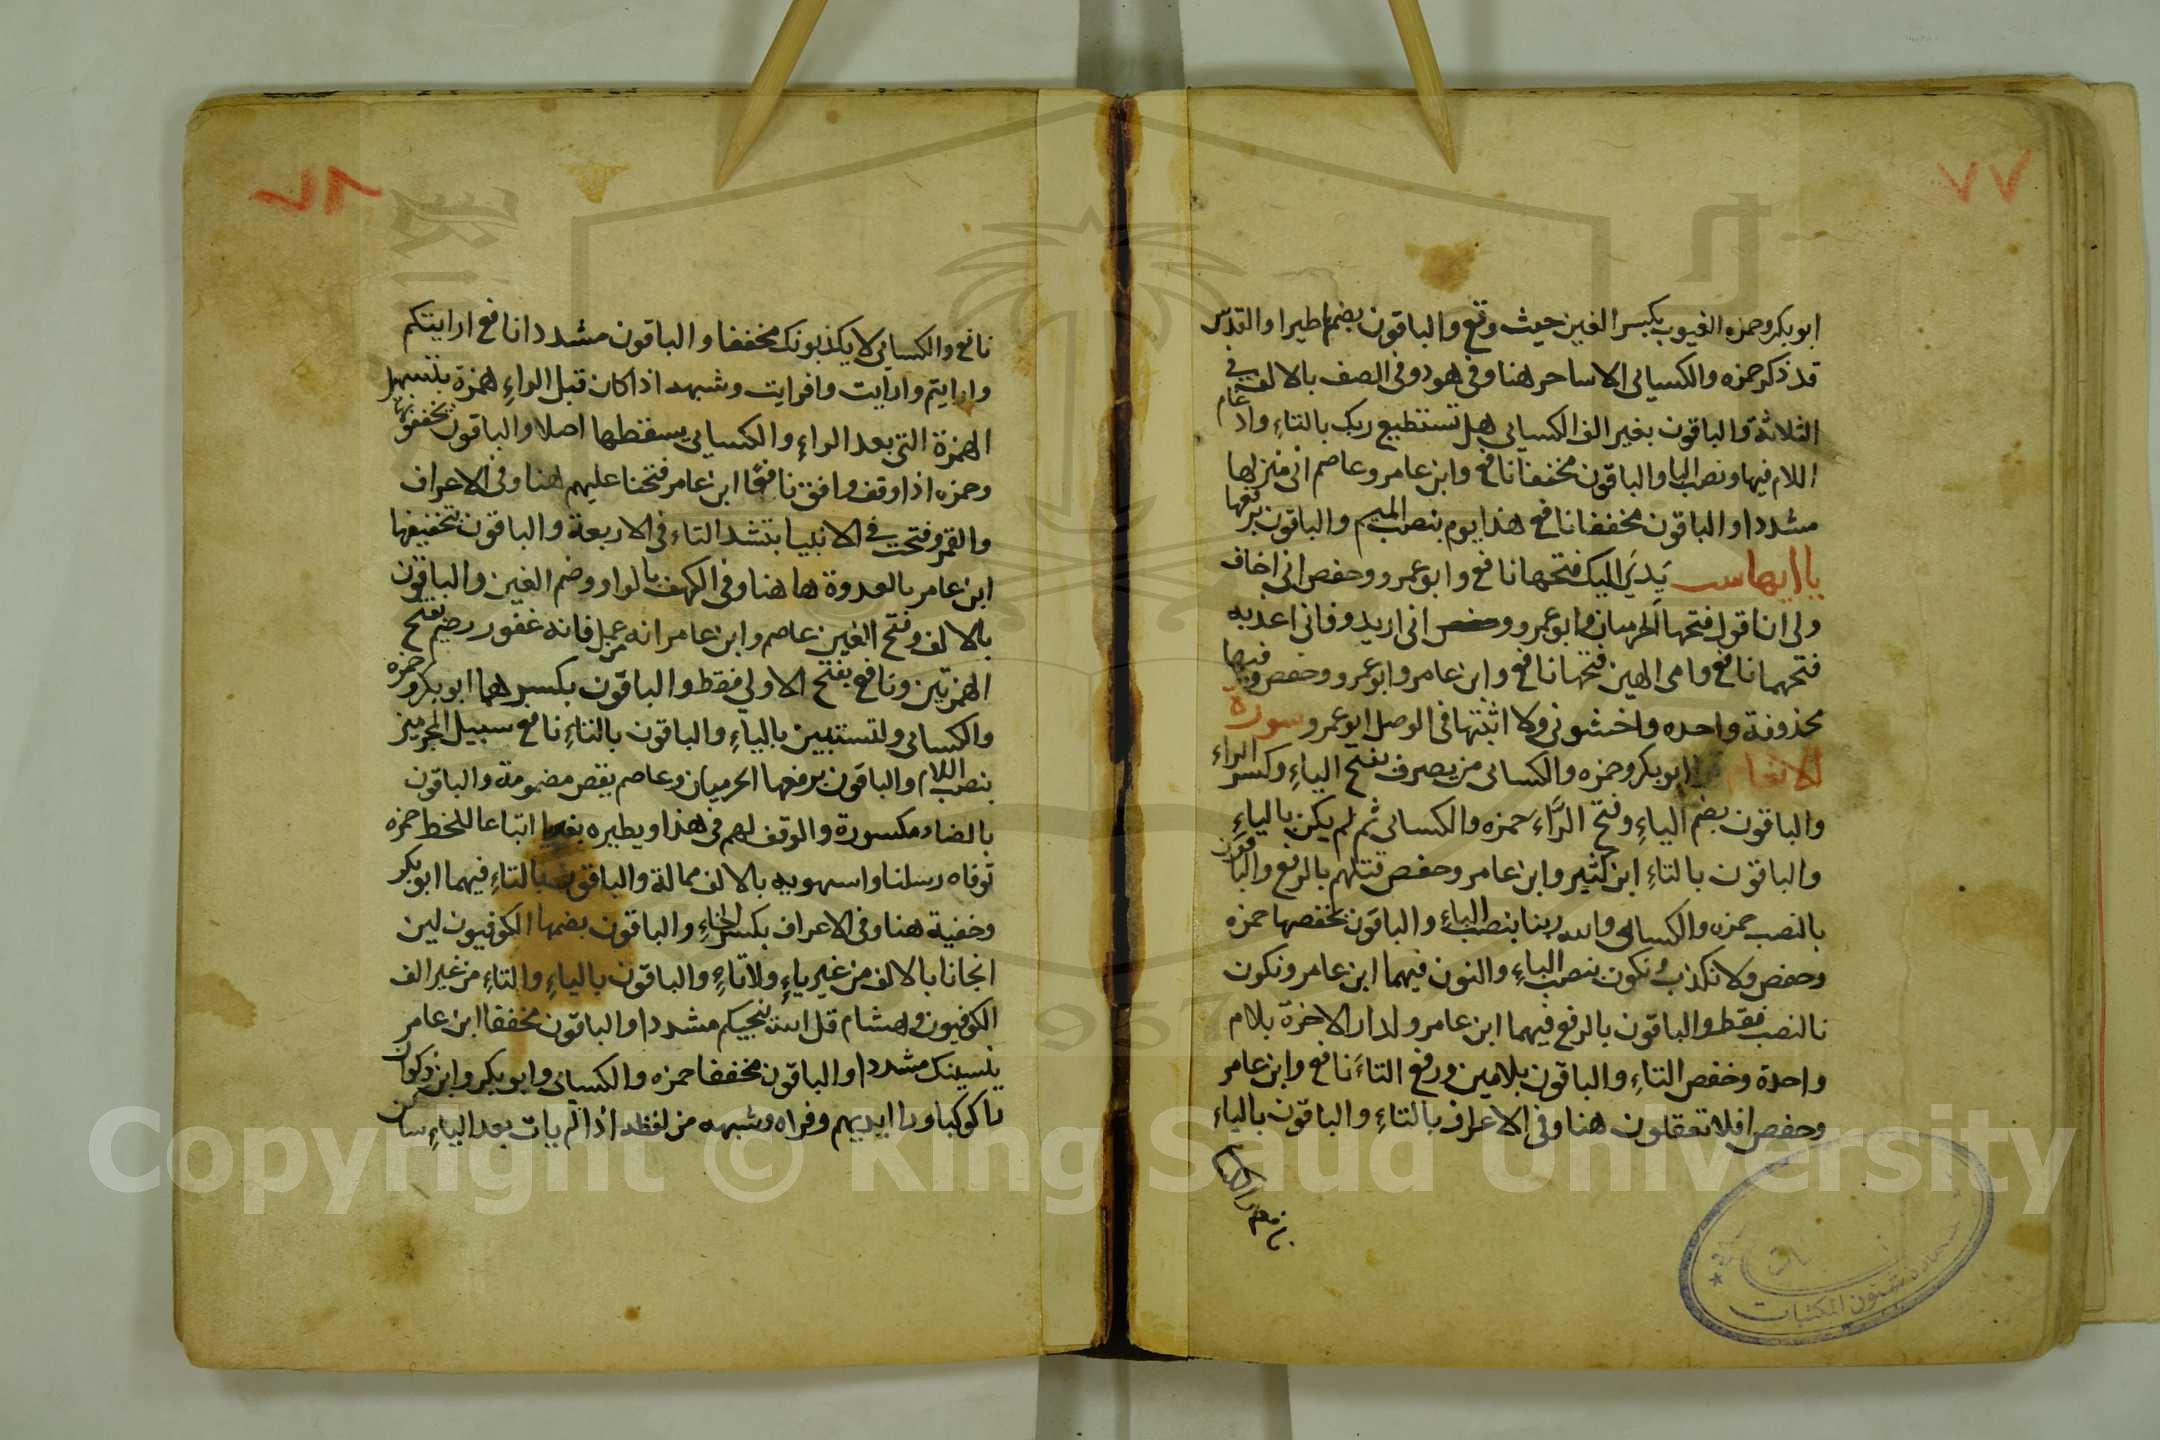 ٧٧
ابو بكر وحمزه الغيوب بكسر الغين حيث وقع والباقون بضمها طيرا والقدس
قد ذكر حمزه والكسائى الا ساحر هنا وفى هود وفى الصف بالالف فى
الثلاثة والباقون بغير الف الكسائي هل تستطيع ربك بالتاءِ وادغام
اللام فيها ونصب البا والباقون مخففا نافع وابن عامر وعاصم انى منزلها
مشددا والباقون مخففا نافع هذا يوم بنصب الميم والباقون برفعها
يا ايها ست يَدِيَ اليك فتحها نافع وابو عمرو وحفص انى اخاف
ولى ان اقول فتحها الحرميان وابو عمرو وحفص انى اريد وفانى اعذبه
فتحهما نافع وامى الهين فتحها نافع وابن عامر وابو عمرو وحفص وفيها
محذوفة واحده واخشونى ولا اثبتها فى الوصل ابو عمرو سورة
الانعام قرا ابو بكر وحمزه والكسائى من يصرف بفتح الياءِ وكسر الراء
والباقون بضم الياءِ وفتح الرَّاءِ حمزه والكسائى ثم لم يكن بالياءِ
والباقون بالتاءِ ابن كثير وابن عامر وحفص فتنتهم بالرفع والباقون
بالنصب حمزه والكسائى والله ربنا بنصب الباءِ والباقون بخفضها حمزه
وحفص ولا نكذب ونكون بنصب الباءِ والنون فيهما ابن عامر ونكون
بالنصب فقط والباقون بالرفع فيهما ابن عامر ولدار الاخرة بلام
واحدة وخفض التاءِ والباقون بلامين ورفع التاءِ نافع وابن عامر
وحفص افلا تعقلون هنا وفى الاعراف بالتاءِ والباقون بالياءِ
نافع والكسا
عمادة شئون المكتبات
نافع والكسائى لا يكذبونك مخففا والباقون مشددا نافع ارايتكم
وارايتم وارايت وافرايت وشبهه اذا كان قبل الراءِ همزة بتسهيل
الهمزة التى بعد الراءِ والكسائى يسقطها اصلا والباقون يحققونها
وحمزه اذا وقف وافق نافعًا ابن عامر فتحنا عليهم هنا وفى الاعراف
والقمر وفتحت فى الانبيا بتشد التاء فى الاربعة والباقون بتخفيفها
ابن عامر بالغدوة ها هنا وفى الكهف بالواو وضم الغين والباقون
بالالف وفتح الغين عاصم وابن عامر انه من عمل فانه غفور رحيم بفتح
الهمزتين ونافع بفتح الاولى فقط والباقون بكسرهما ابو بكر وحمزه
والكسائى ولتستبين بالياءِ والباقون بالتاءِ نافع سبيل المجرمين
بنصب اللام والباقون برفعها الحرميان وعاصم يقص مضمومة والباقون
بالضاد مكسورة والوقف لهم فى هذا ويطيره بغير يا اتباعا للخط حمزه
توفاه رسلنا واستهويه بالالف ممالة والباقون بالتاءِ فيهما ابو بكر
وخفية هنا وفى الاعراف بكسر الخاءِ والباقون بضمها الكوفيون لين
انجانا بالالف من غير ياءٍ ولا تاءٍ والباقون بالياءِ والتاءِ من غير الف
الكوفيون وهشام قل الله ينجيكم مشددا والباقون مخففا ابن عامر
ينسينك مشددا والباقون مخففا حمزه والكسائى وابو بكر وابن ذكوان
را كوكبا ورا ايديهم وفراه وشبهه من لفظه اذا لم يات بعد الياءِ ساكن
Copyright © King Saud University
1957